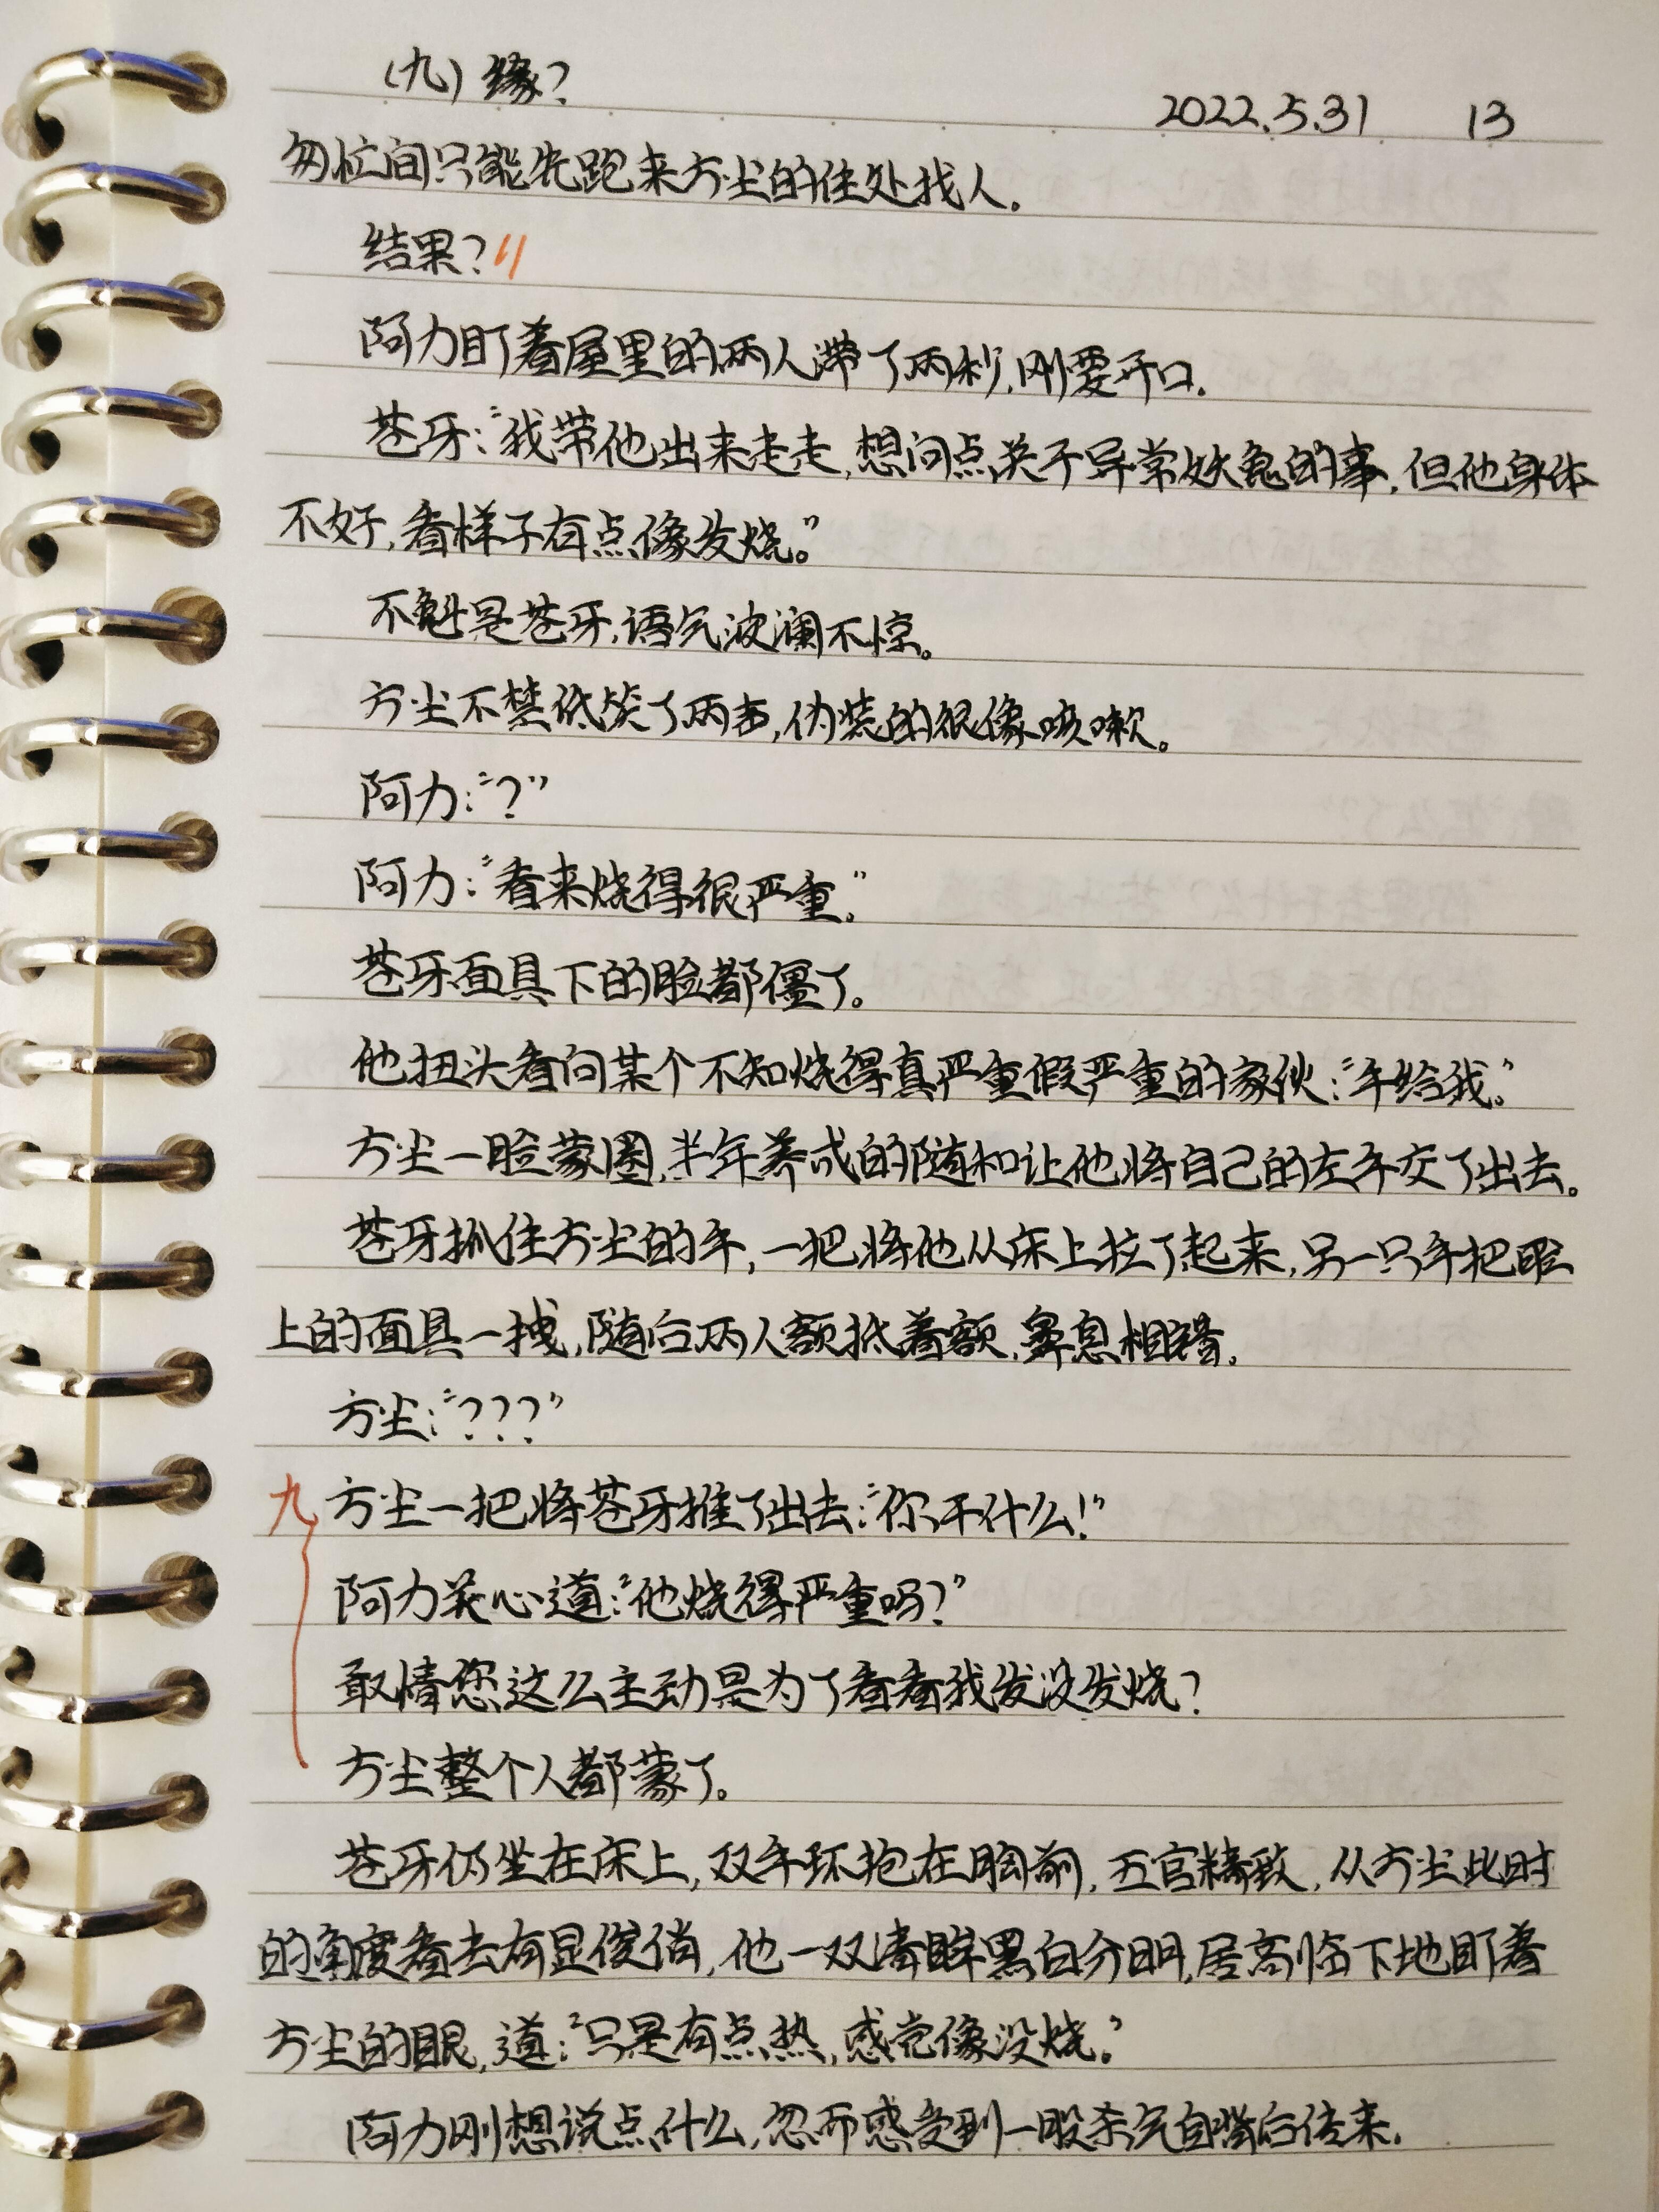 (九) 缘?
2022.5.31 13
匆忙间只能先跑来方尘的住处找人.
结果?
阿力盯着屋里的两人滞了两秒,刚要开口.
苍牙:"我带他出来走走,想问点关于异常妖鬼的事,但他身体
不好,看样子有点像发烧。"
不魁是苍牙,语气波澜不惊。
方尘不禁低笑了两声,伪装的很像咳嗽。
阿力:"?"
阿力:"看来烧得很严重。"
苍牙面具下的脸都僵了。
他扭头看向某个不知烧得真严重假严重的家伙:"手给我。"
方尘一脸蒙圈,半年养成的随和让他将自己的左手交了出去。
苍牙抓住方尘的手,一把将他从床上拉了起来,另一只手把脸
上的面具一拽,随后两人额抵着额,鼻息相错.
方尘:"???"
九 方尘一把将苍牙推了出去:"你干什么!"
阿力关心道:"他烧得严重吗?"
敢情您这么主动是为了看看我发没发烧?
方尘整个人都蒙了。
苍牙仍坐在床上,双手环抱在胸前,五官精致,从方尘此时
的角度看去有显俊俏,他一双清眸黑白分明,居高临下地盯着
方尘的眼,道:"只是有点热,感觉像没烧."
阿力刚想说点什么,忽而感受到一股杀气自背后传来.